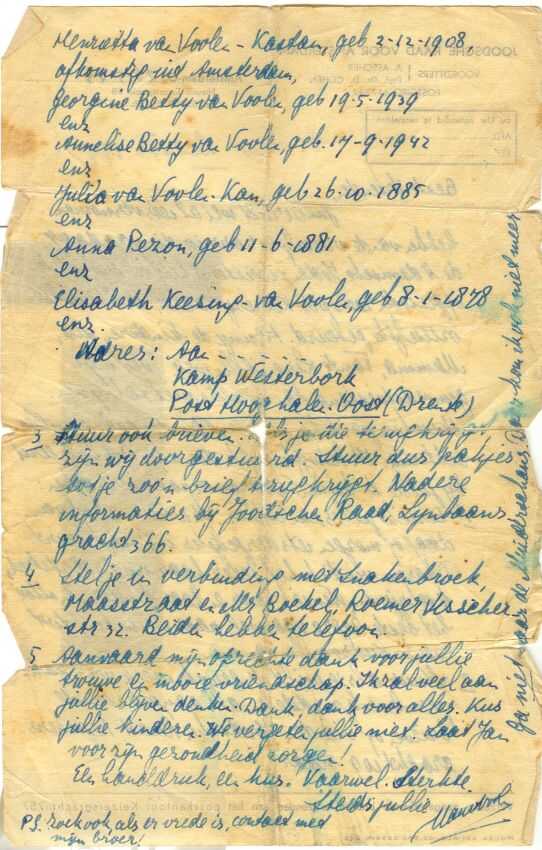 Henrietta van Voolen - Kastan, geb 2-12-1908,
afkomstig uit Amsterdam,
Georgine Betty van Voolen, geb 19-5-1939
enz
Annelise Betty van Voolen, geb. 17-9-1942
enz
Julia van Voolen-Kan, geb 26-10-1885
enz
Anna Pezon, geb 11-6-1881
enz
Elisabeth Keesing-van Voolen, geb 8-1-1878
enz.
Adres: Aan . . . . . . .
Kamp Westerbork
Post Hooghalen-Oost (Drente)
3 Stuur ook brieven. Als je die terugkrijgt,
zijn wij doorgestuurd. Stuur dus pakjes
tot je zoo'n brief terugkrijgt. Nadere
informaties bij Joodschen Raad, Lijnbaans
gracht 366.
4 Stel je in verbinding met Snakenbroek,
Maasstraat en Mr Boekel, Roemer Visscher
str 32. Beiden hebben telefoon.
5 Aanvaard mijn oprechte dank voor jullie
trouwe en mooie vriendschap. Ik zal veel aan
jullie blijven denken. Dank, dank voor alles. Kus
jullie kinderen. We vergeten jullie niet. Laat Jan
voor zijn gezondheid zorgen!
Een handdruk, een kus. Vaarwel. Sterkte
Steeds jullie
P.S. Zoek ook als er vrede is, contact met
mijn broer!
Ga niet naar de Muiderschans. Daar kom ik ook niet meer
JOODSCHE RAAD VOOR AMSTERDAM
VOORZITTERS
A. ASSCHER
Prof. Dr. D. COHEN